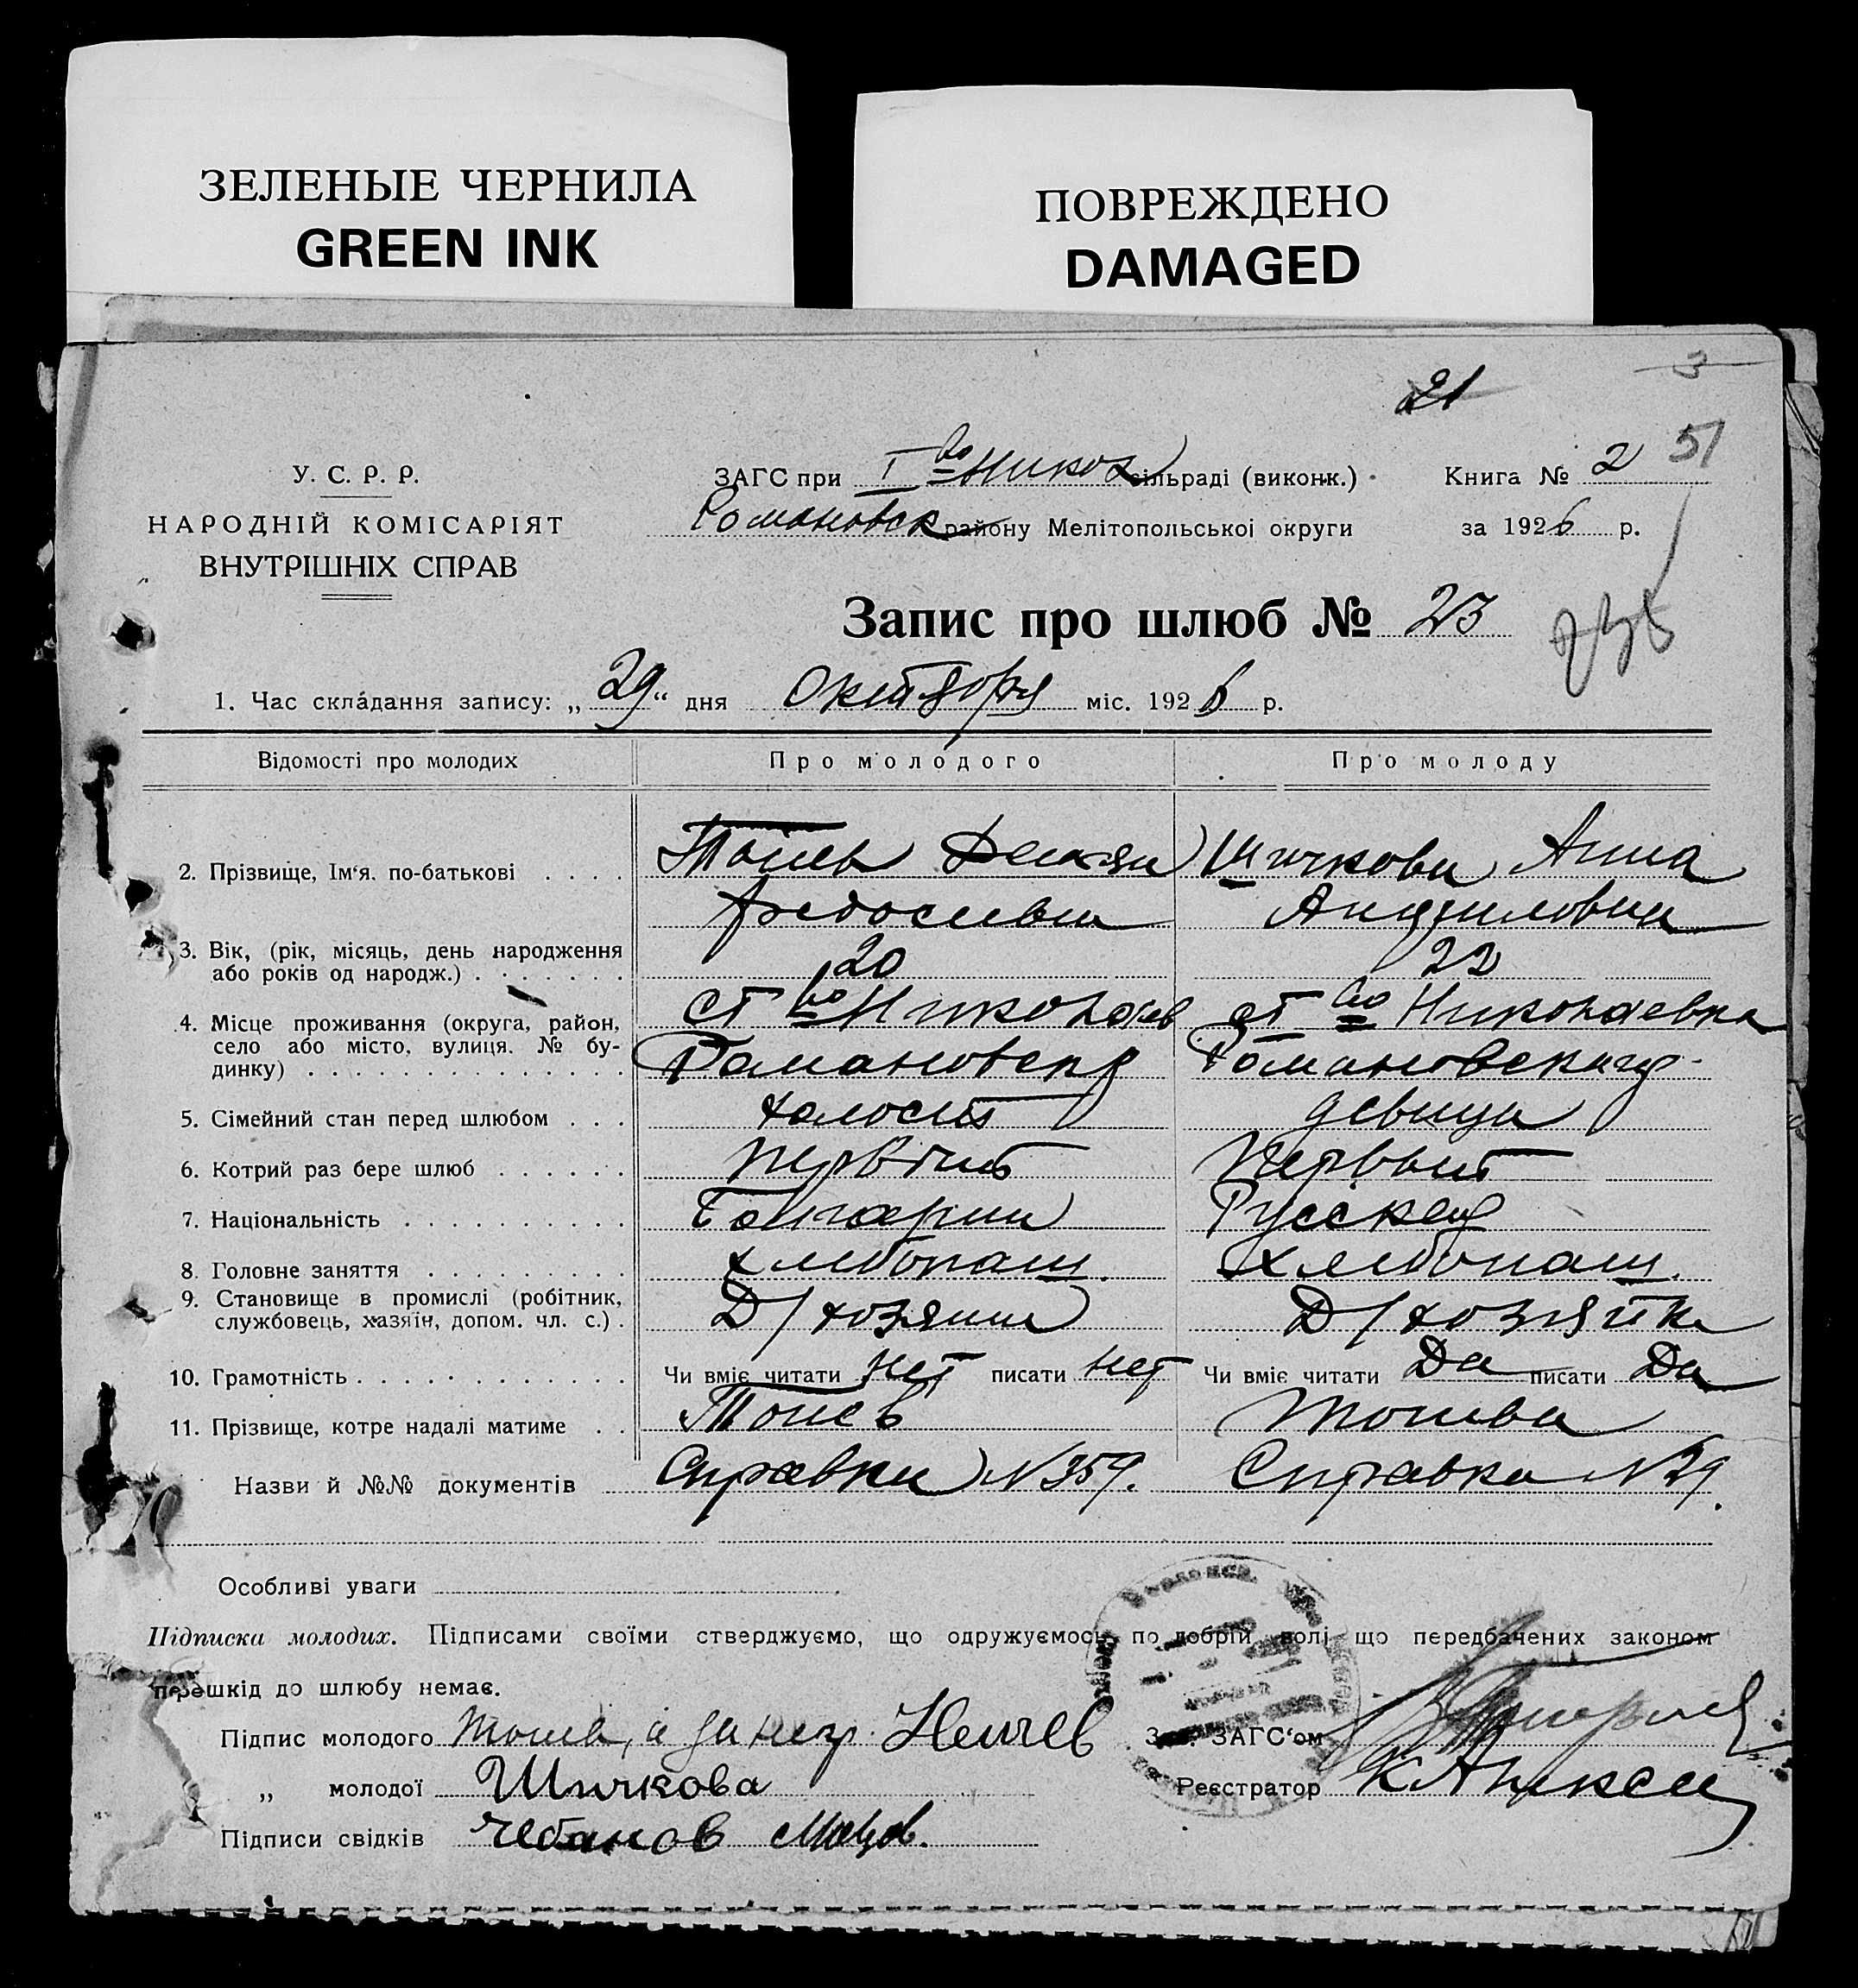 ЗЕЛЕНЫЕ ЧЕРНИЛА
GREEN INK
ПОВРЕЖДЕНО
DAMAGED
3
21
51
У. С. Р. Р.
НАРОДНІЙ КОМІСАРІЯТ
ВНУТРІШНІХ СПРАВ
ЗАГС при I во Никол сільраді (виконк.)
Романовск району Мелітопольської округи
Книга № 2
за 1926 р.
Запис про шлюб № 23
1. Час складання запису: „29“ дня Октября міс. 1926 р.
Відомості про молодих Про молодого Про молоду
2. Прізвище, Ім‘я, по-батькові . . . . Тонев Демян Шичкова Анна
Федосиева Даниловна
3. Вік, (рік, місяць, день народження 20 22
або років од народж.) . . . . . . .
4. Місце проживання (округа, район, ст во Николаев ст во Николаевка
село або місто, вулиця. № бу- Романовск Романовского
динку) . . . . . . . . . . . . . .
5. Сімейний стан перед шлюбом . . . холост девица
6. Котрий раз бере шлюб . . . . . . Первый Первый
7. Національність . . . . . . . . . . Болгарин Русская
8. Головне заняття . . . . . . . . . хлебопаш. хлебопаш.
9. Становище в промислі (робітник, Д/хозяин Д/хозяйка
службовець, хазяїн, допом. чл. с.) .
10. Грамотність . . . . . . . . . . . . Чи вміє читати Нет писати Нет Чи вміє читати Да писати Да
11. Прізвище, котре надалі матиме . . Тонев Тонева
Назви й №№ документів Справка №359. Справка №29.
Особливі уваги
Підписка молодих. Підписами своїми стверджуємо, що одружуємось по добрій волі що передбачених законом
перешкід до шлюбу немає.
Підпис молодого Тонев, а за негр. Зав. ЗАГС‘ом
„ молодої Шичкова Реєстратор
Підписи свідків Чебанов